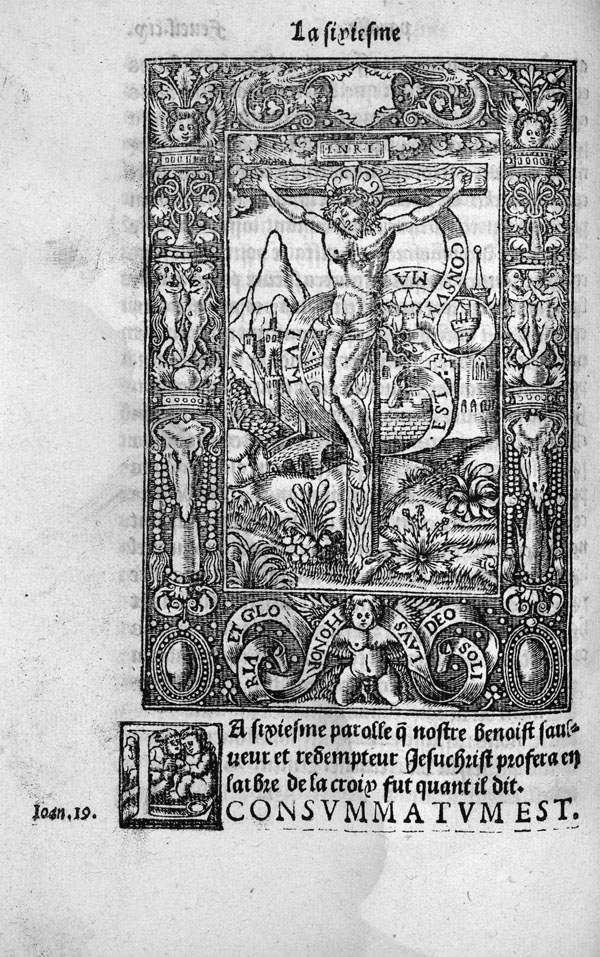 La sixiesme
·I·N·R·I·
CONSVM
MA
TVM
EST·
RIA ET GLO
HONOR
LAVS
DEO
SOLI
LA sixiesme parolle q̃ nostre benoist saul-
ueur et redempteur Jesuchrist profera en
larbre de la croix fut quant il dit.
Ioan.19.
CONSVMMATVM EST.